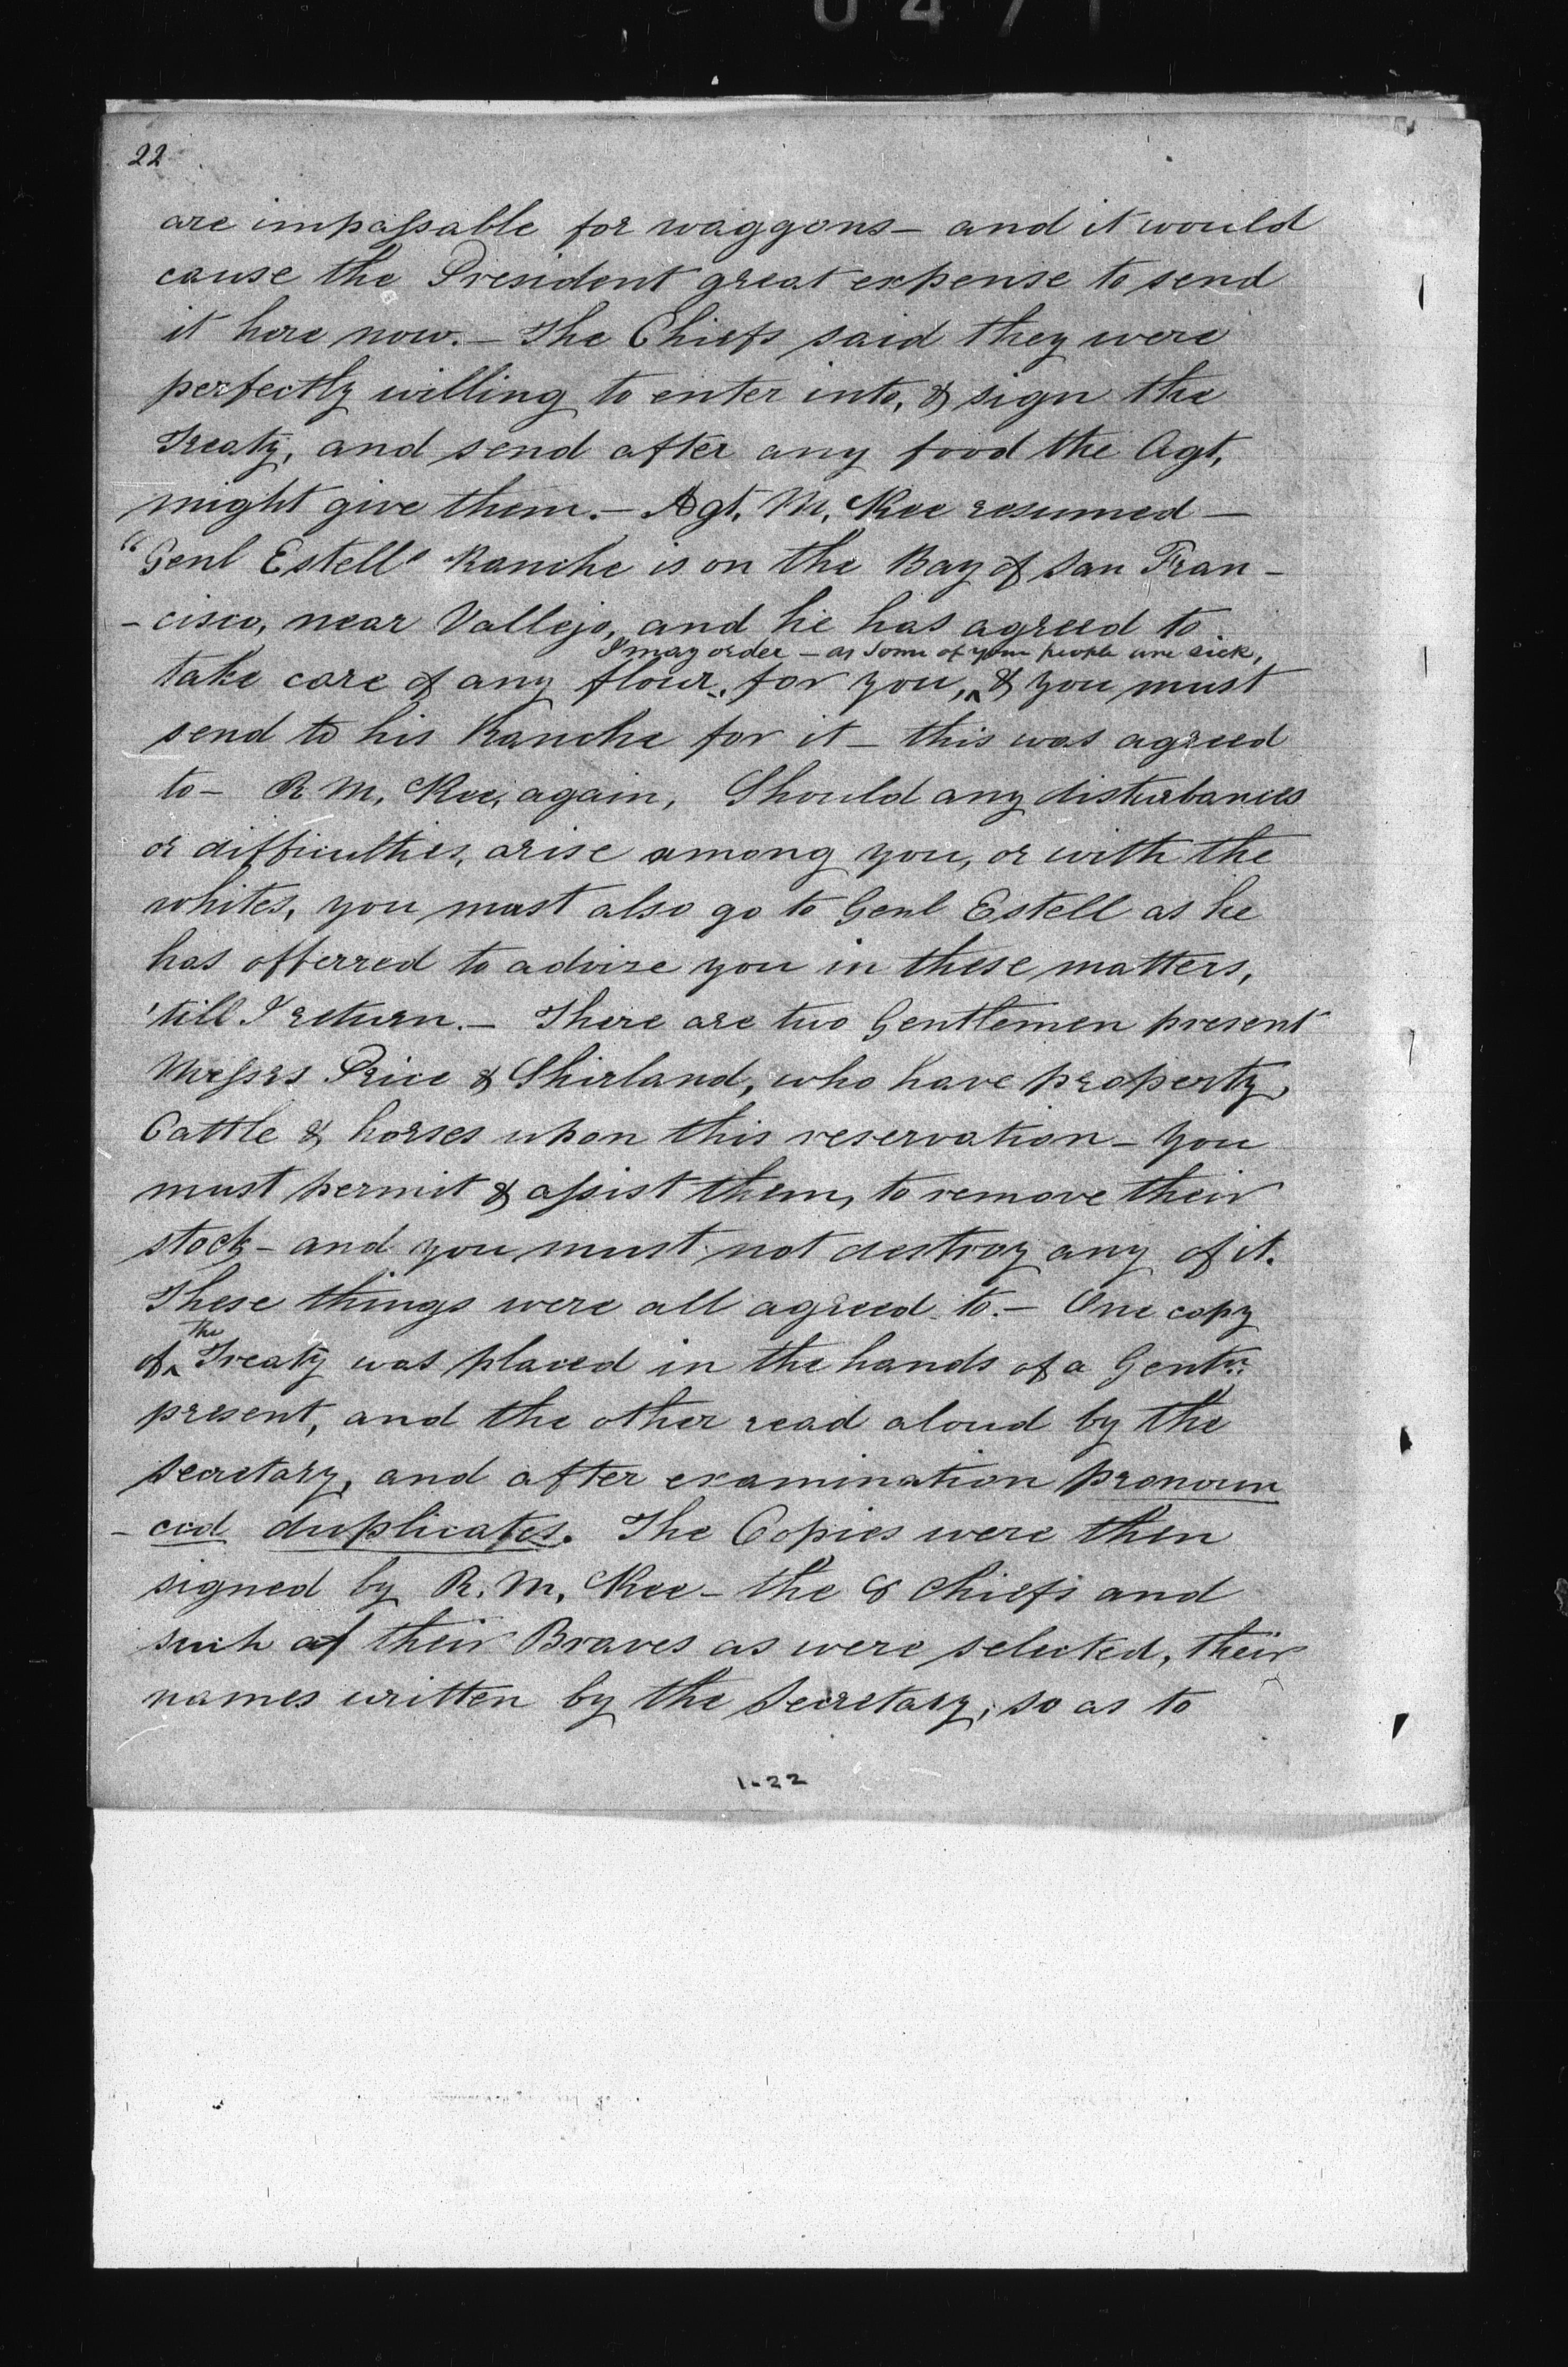 0471
22
are impassable for waggons – and it would
cause the President great expense to send
it here now. – The Chiefs said they were
perfectly willing to enter into, & sign the
Treaty, and send after any food the Agt,
might give them. – Agt. M, Kee resumed –
"Genl Estell's Ranche is on the Bay of San Fran-
-cisco, near Vallejo, and he has agreed to
I may order – as some of your people are sick,
take care of any flour, for you, & you must
send to his Ranche for it – this was agreed
to – R M, Kee, again, Should any disturbances
or difficulties, arise among you, or with the
whites, you must also go to Genl Estell as he
has offerred to advise you in these matters,
'till I return. – There are two Gentlemen present
Messrs Price & Shirland, who have property,
Cattle & horses upon this reservation – you
must permit & assist them, to remove their
stock – and you must not destroy any of it.
These things were all agreed to. – One copy
the
of Treaty was placed in the hands of a Gentn.
present, and the other read aloud by the
Secretary, and after examination pronoun
-ced duplicates. The Copies were then
signed by R. M, Kee – the 8 Chiefs and
such of their Braves as were selected, their
names written by the Secretary, so as to
1-22